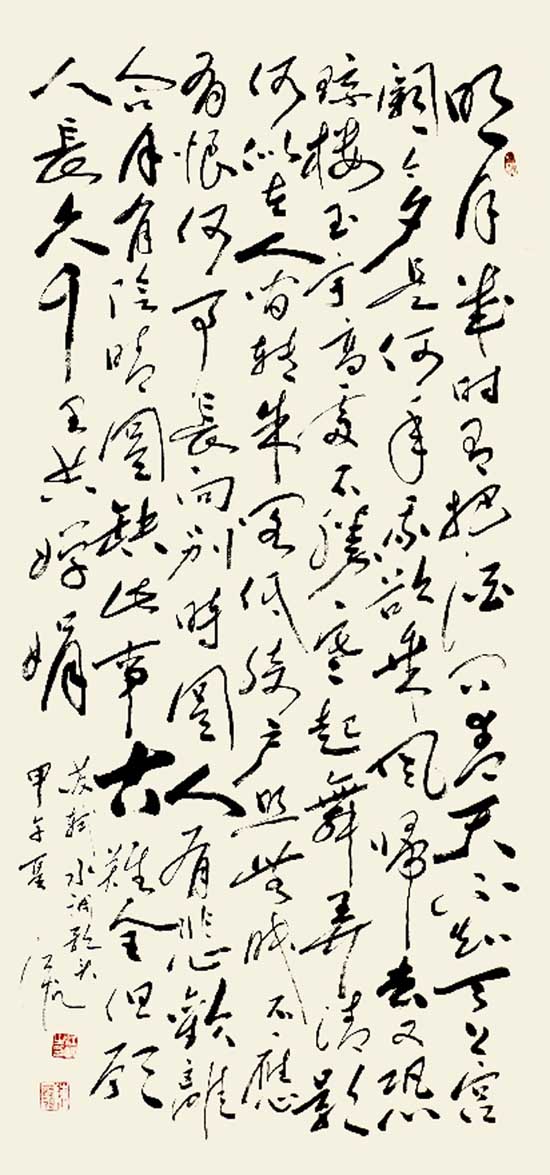 明月幾时有把酒问青天不知天上宫
阙今夕是何年我欲乘风歸去又恐
琼楼玉宇高處不勝寒起舞弄清影
何似在人间转朱阁低绮户照無眠不應
有恨何事長向别時圓人有悲歡離
合月有陰晴圓缺此事古難全但愿
人長久千里共嬋娟
苏轼水调歌头
甲午夏